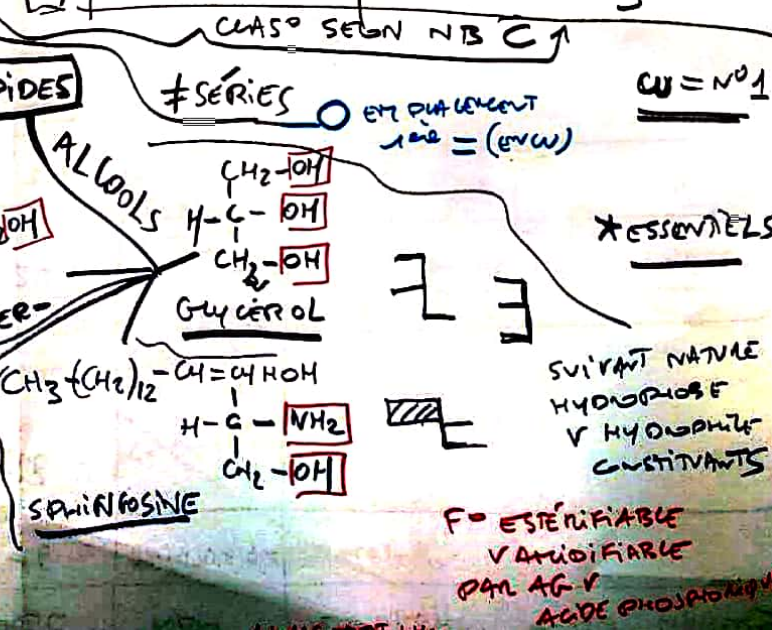 CLAS° SEGN NB C
PIDES
≠ SÉRIES
EMPLACEMENT
1ère = (EN W)
W = N°1
ALCOOLS
CH2-OH
H-C-OH
CH2-OH
OH
GLYCÉROL
*ESSENTIELS
ER-
CH3-(CH2)12-CH=CHHOH
H-C-NH2
CH2-OH
SPHINGOSINE
SUIVANT NATURE
HYDROPHOBE
V HYDROPHILE
CONSTITUANTS
F° ESTÉRIFIABLE
V AMIDIFIABLE
PAR AG V
ACIDE PHOSPHORIQU